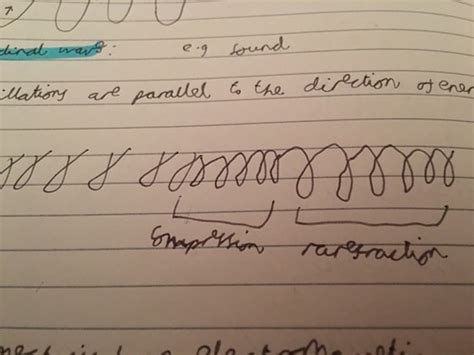 dinal wave: e.g sound
illations are parallel to the direction of ener
compression rarefraction